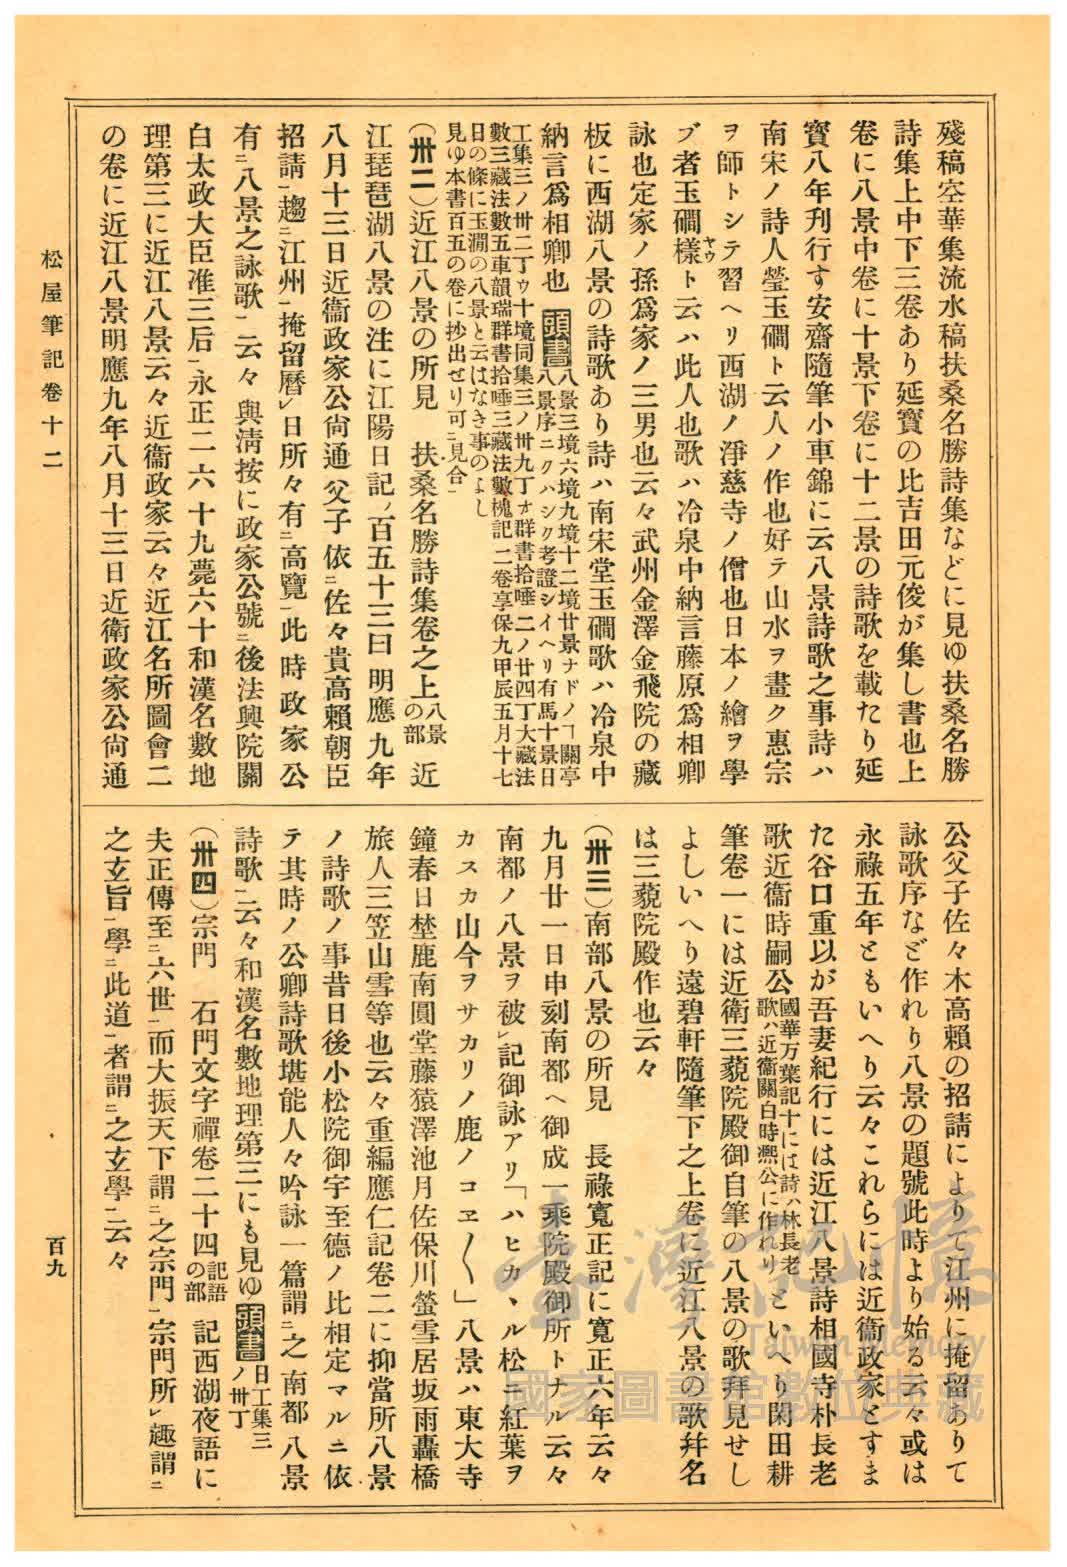 殘稿空華集流水稿扶桑名勝詩集などに見ゆ扶桑名勝
詩集上中下三卷あり延寶の比吉田元俊が集し書也上
卷に八景中卷に十景下卷に十二景の詩歌を載たり延
寶八年刊行す安齋隨筆小車錦に云八景詩歌之事詩ハ
南宋ノ詩人瑩玉礀ト云人ノ作也好テ山水ヲ畫ク惠宗
ヲ師トシテ習ヘリ西湖ノ淨慈寺ノ僧也日本ノ繪ヲ學
ブ者玉礀樣ヤウト云ハ此人也歌ハ冷泉中納言藤原爲相卿
詠也定家ノ孫爲家ノ三男也云々武州金澤金飛院の藏
板に西湖八景の詩歌あり詩ハ南宋堂玉礀歌ハ冷泉中
納言爲相卿也 頭書
八景三境六境九境十二境廿景ナドノヿ關亭
八景序ニクハシク考證シイヘリ有馬十景日
工集三ノ卅二丁ウ十境同集三ノ卅九丁オ群書拾唾二ノ廿四丁大藏法
數三藏法數五車韻瑞群書拾唾三藏法數槐記二卷享保九甲辰五月十七
日の條に玉㵎の八景と云はなき事のよし
見ゆ本書百五の卷に抄出せり可ニ見合一
(卅二)近江八景の所見 扶桑名勝詩集卷之上八景の部 近
江琵琶湖八景の注に江陽日記ノ百五十三曰明應九年
八月十三日近衞政家公尙通父子依ニ佐々貴高賴朝臣
招請一趨ニ江州一掩留曆レ日所々有ニ高覽一此時政家公
有ニ八景之詠歌一云々 與淸按に政家公號ニ後法興院關
白太政大臣准三后一永正二六十九薨六十和漢名數地
理第三に近江八景云々近衞政家云々近江名所圖會二
の卷に近江八景明應九年八月十三日近衞政家公尙通
公父子佐々木高賴の招請によりて江州に掩留ありて
詠歌序など作れり八景の題號此時より始る云々或は
永祿五年ともいへり云々これらには近衞政家とすま
た谷口重以が吾妻紀行には近江八景詩相國寺朴長老
歌近衞時嗣公
國華万葉記十には詩ハ林長老
歌ハ近衞關白時凞公に作れり
といへり閑田耕
筆卷一には近衞三藐院殿御自筆の八景の歌拜見せし
よしいへり遠碧軒隨筆下之上卷に近江八景の歌幷名
は三藐院殿作也云々
(卅三)南部八景の所見 長祿寬正記に寬正六年云々
九月廿一日申刻南都ヘ御成一乘院殿御所トナル云々
南都ノ八景ヲ被レ記御詠アリ「ハヒカヽル松ニ紅葉ヲ
カスカ山今ヲサカリノ鹿ノコヱ〱」八景ハ東大寺
鐘春日埜鹿南圓堂藤猿澤池月佐保川螢雪居坂雨轟橋
旅人三笠山雪等也云々重編應仁記卷二に抑當所八景
ノ詩歌ノ事昔日後小松院御宇至德ノ比相定マルニ依
テ其時ノ公卿詩歌堪能人々吟詠一篇謂ニ之南都八景
詩歌一云々和漢名數地理第三にも見ゆ 頭書 日工集三ノ卅丁
(卅四)宗門 石門文字禪卷二十四記語の部 記西湖夜語に
夫正傳至ニ六世一而大振天下謂ニ之宗門一宗門所レ趣謂ニ
之玄旨一學ニ此道一者謂ニ之玄學一云々
松屋筆記卷十二
百九
臺灣記憶
Taiwan Memory
國家圖書館數位典藏